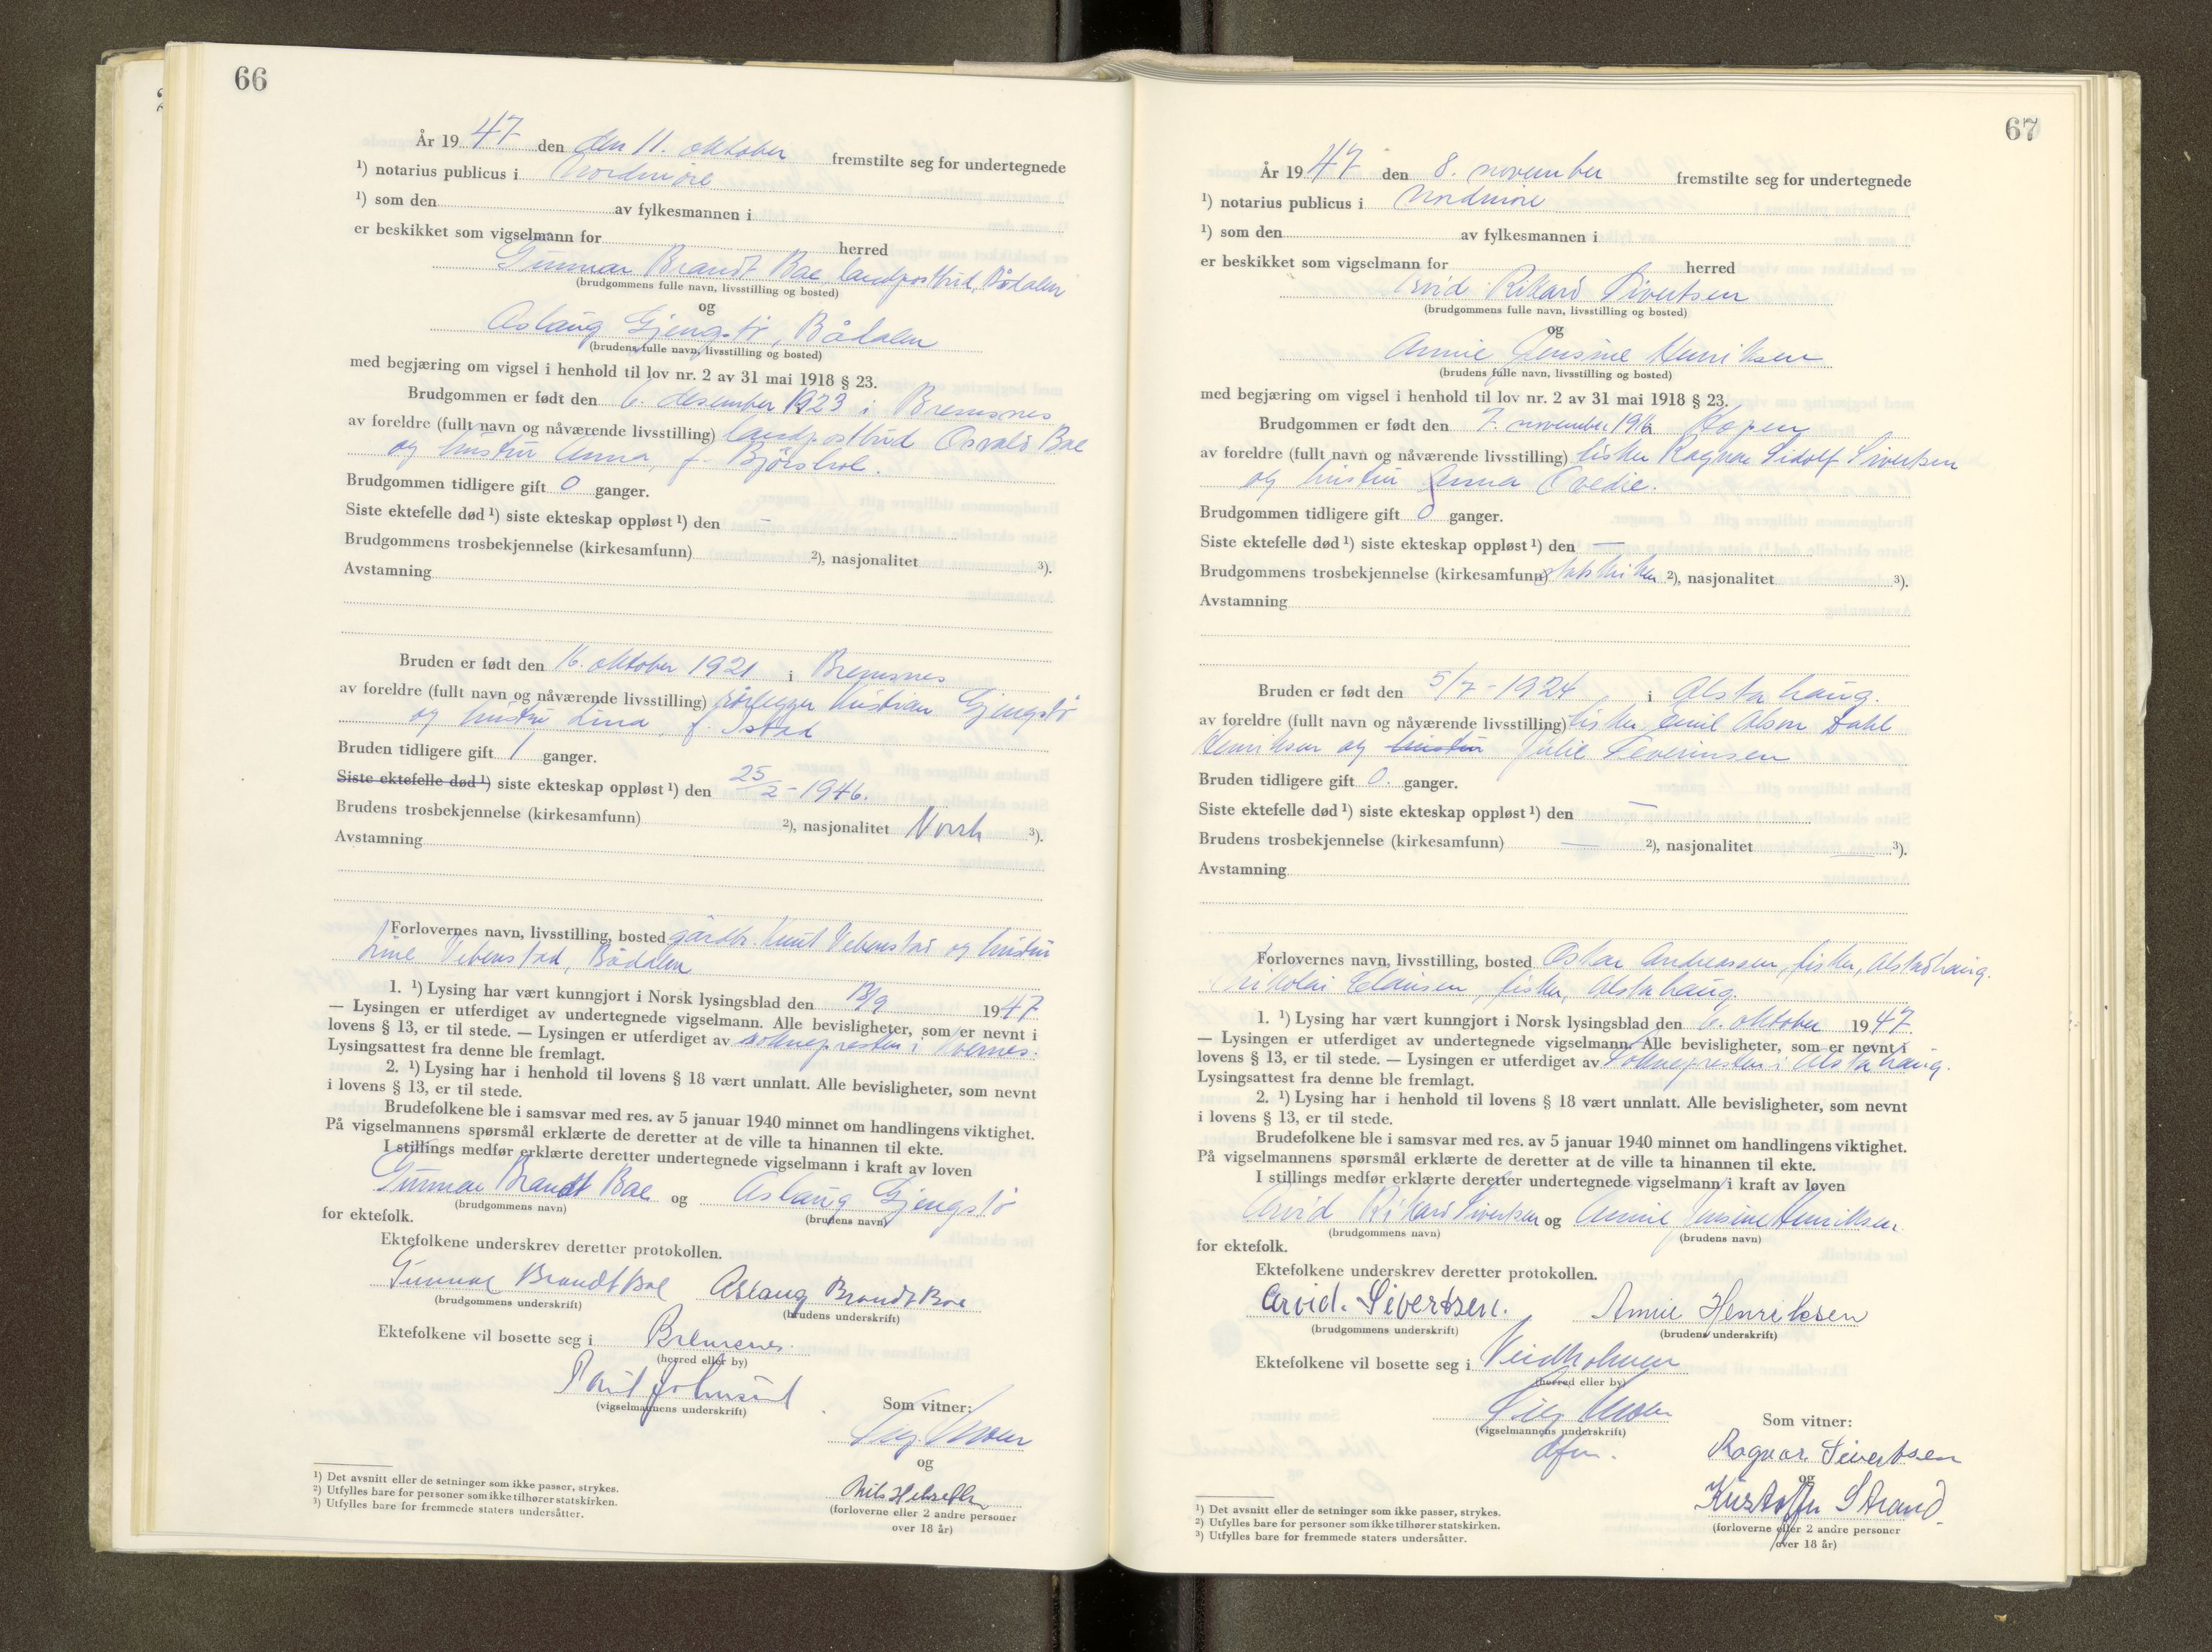 66
År 1947 den den 11. oktober fremstilte seg for undertegnede
¹) notarius publicus i Nordmøre
¹) som den av fylkesmannen i
er beskikket som vigselmann for herred
Gunnar Brandt Bae, landpostbud, Bådalen
(brudgommens fulle navn, livsstilling og bosted)
og
Aslaug Gjengstø, Bådalen
(brudens fulle navn, livsstilling og bosted)
med begjæring om vigsel i henhold til lov nr. 2 av 31 mai 1918 § 23.
Brudgommen er født den 6. desember 1923 i Bremsnes
av foreldre (fullt navn og nåværende livsstilling) landpostbud Osvald Bae
og hustru Anna, f.
Brudgommen tidligere gift 0 ganger.
Siste ektefelle død ¹) siste ekteskap oppløst ¹) den -
Brudgommens trosbekjennelse (kirkesamfunn) ²), nasjonalitet ³).
Avstamning
Bruden er født den 16. oktober 1921 i Bremsnes
av foreldre (fullt navn og nåværende livsstilling) rørlegger Kristian Gjengstø
og hustru Lina, f. Istad
Bruden tidligere gift 1 ganger.
Siste ektefelle død ¹) siste ekteskap oppløst ¹) den 25/2-1946.
Brudens trosbekjennelse (kirkesamfunn) ²), nasjonalitet Norsk ³).
Avstamning
Forlovernes navn, livsstilling, bosted gårdbr. Knut Vebenstad og hustru
Line Vebenstad, Bådalen
1. ¹) Lysing har vært kunngjort i Norsk lysingsblad den 13/9 1947
— Lysingen er utferdiget av undertegnede vigselmann. Alle bevisligheter, som er nevnt i
lovens § 13, er til stede. — Lysingen er utferdiget av soknepresten i Kvernes.
Lysingsattest fra denne ble fremlagt.
2. ¹) Lysing har i henhold til lovens § 18 vært unnlatt. Alle bevisligheter, som nevnt
i lovens § 13, er til stede.
Brudefolkene ble i samsvar med res. av 5 januar 1940 minnet om handlingens viktighet.
På vigselmannens spørsmål erklærte de deretter at de ville ta hinannen til ekte.
I stillings medfør erklærte deretter undertegnede vigselmann i kraft av loven
Gunnar Brandt Bae og Aslaug Gjengstø
(brudgommens navn) (brudens navn)
for ektefolk.
Ektefolkene underskrev deretter protokollen.
Gunnar Brandt Bae Aslaug Brandt Bae
(brudgommens underskrift) (brudens underskrift)
Ektefolkene vil bosette seg i Bremsnes.
(herred eller by)
Paul Johnsen
(vigselmannens underskrift)
Som vitner:
og
Nils
(forloverne eller 2 andre personer
over 18 år)
¹) Det avsnitt eller de setninger som ikke passer, strykes.
²) Utfylles bare for personer som ikke tilhører statskirken.
³) Utfylles bare for fremmede staters undersåtter.
67
År 1947 den 8. november fremstilte seg for undertegnede
¹) notarius publicus i Nordmøre
¹) som den av fylkesmannen i
er beskikket som vigselmann for herred
Arvid Rikard Sivertsen
(brudgommens fulle navn, livsstilling og bosted)
og
Annie Jensine Henriksen
(brudens fulle navn, livsstilling og bosted)
med begjæring om vigsel i henhold til lov nr. 2 av 31 mai 1918 § 23.
Brudgommen er født den 7. november 1916 Hopen
av foreldre (fullt navn og nåværende livsstilling) fisker Ragnar Sidolf Sivertsen
og hustru Anna Ovedie.
Brudgommen tidligere gift 0 ganger.
Siste ektefelle død ¹) siste ekteskap oppløst ¹) den —
Brudgommens trosbekjennelse (kirkesamfunn) statskirken ²), nasjonalitet ³).
Avstamning
Bruden er født den 5/7-1924 i Alstahaug.
av foreldre (fullt navn og nåværende livsstilling) fisker Emil Dahl
Henriksen og hustru Julie Severinsen
Bruden tidligere gift 0. ganger.
Siste ektefelle død ¹) siste ekteskap oppløst ¹) den —
Brudens trosbekjennelse (kirkesamfunn) — ²), nasjonalitet — ³).
Avstamning
Forlovernes navn, livsstilling, bosted Oskar Andreassen, fisker, Alstadhaug.
Nikolai Clausen, fisker, Alstahaug.
1. ¹) Lysing har vært kunngjort i Norsk lysingsblad den 6. oktober 1947
— Lysingen er utferdiget av undertegnede vigselmann. Alle bevisligheter, som er nevnt i
lovens § 13, er til stede. — Lysingen er utferdiget av soknepresten i Alstahaug.
Lysingsattest fra denne ble fremlagt.
2. ¹) Lysing har i henhold til lovens § 18 vært unnlatt. Alle bevisligheter, som nevnt
i lovens § 13, er til stede.
Brudefolkene ble i samsvar med res. av 5 januar 1940 minnet om handlingens viktighet.
På vigselmannens spørsmål erklærte de deretter at de ville ta hinannen til ekte.
I stillings medfør erklærte deretter undertegnede vigselmann i kraft av loven
Arvid Rikard Sivertsen og Annie Jensine Henriksen
(brudgommens navn) (brudens navn)
for ektefolk.
Ektefolkene underskrev deretter protokollen.
Arvid. Sivertsen. Annie Henriksen
(brudgommens underskrift) (brudens underskrift)
Ektefolkene vil bosette seg i Veidholmen
(herred eller by)
(vigselmannens underskrift)
Som vitner:
Ragnar Sivertsen
og
Kristoffer Strand
(forloverne eller 2 andre personer
over 18 år)
¹) Det avsnitt eller de setninger som ikke passer, strykes.
²) Utfylles bare for personer som ikke tilhører statskirken.
³) Utfylles bare for fremmede staters undersåtter.